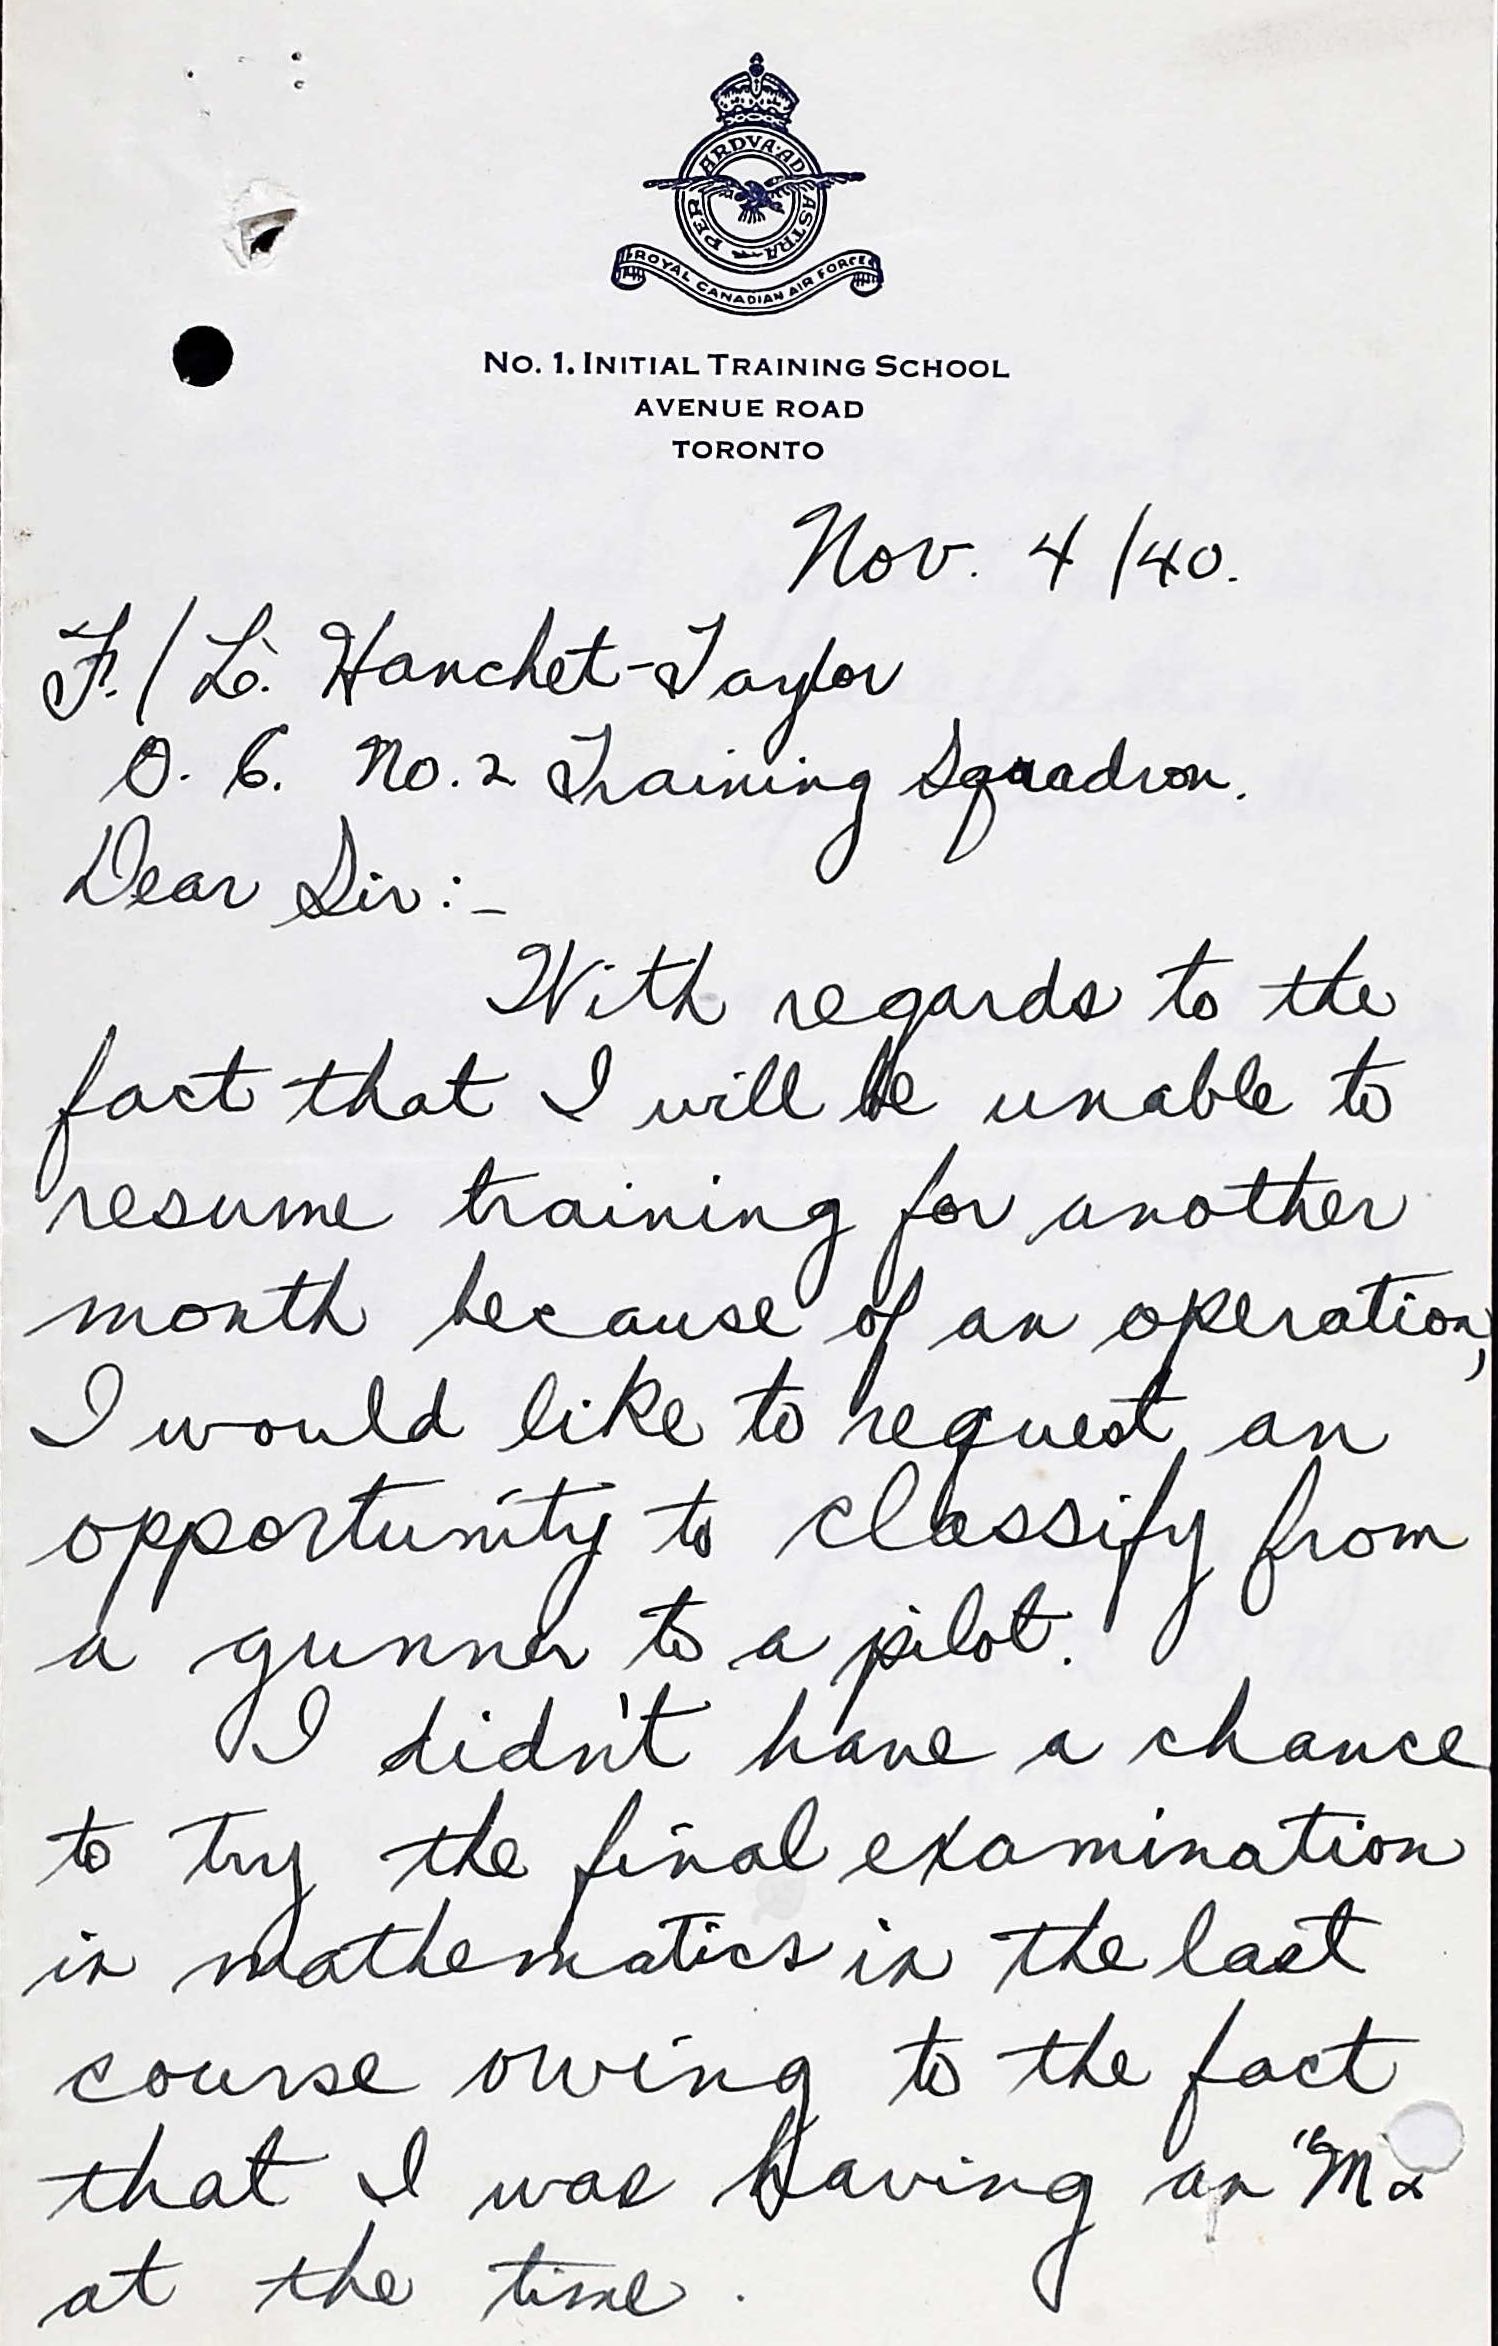 PER ARDVA AD ASTRA
ROYAL CANADIAN AIR FORCE
No. 1. INITIAL TRAINING SCHOOL
AVENUE ROAD
TORONTO
Nov. 4/40.
F./L. Hanchet-Taylor
O. C. No. 2 Training Squadron.
Dear Sir:-
With regards to the
fact that I will be unable to
resume training for another
month because of an operation,
I would like to request an
opportunity to classify from
a gunner to a pilot.
I didn't have a chance
to try the final examination
in mathematics in the last
course owing to the fact
that I was having an "M2
at the time.